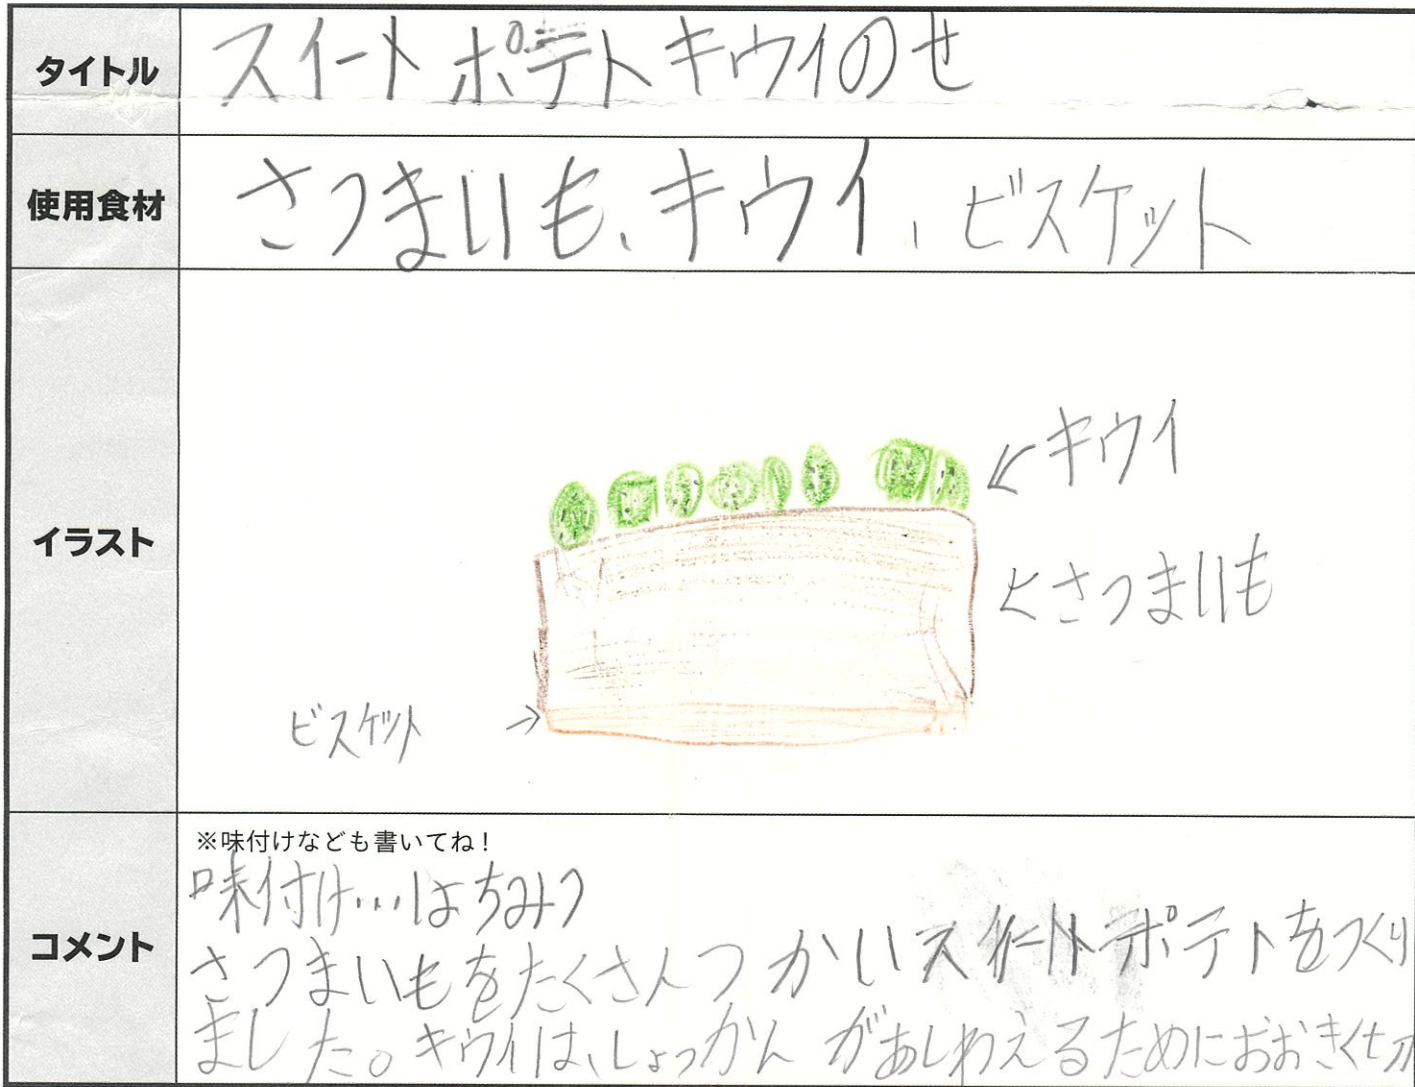 タイトル
スイートポテトキウイのせ
使用食材
さつまいも、キウイ、ビスケット
イラスト
キウイ
さつまいも
ビスケット
コメント
※味付けなども書いてね！
味付け…はちみつ
さつまいもをたくさんつかいスイートポテトをつくり
ました。キウイは、しょっかんがあじわえるためにおおきく切